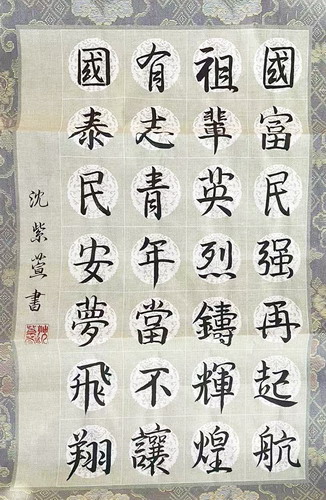 國富民强再起航
祖輩英烈鑄輝煌
有志青年當不讓
國泰民安夢飛翔
沈紫萱書